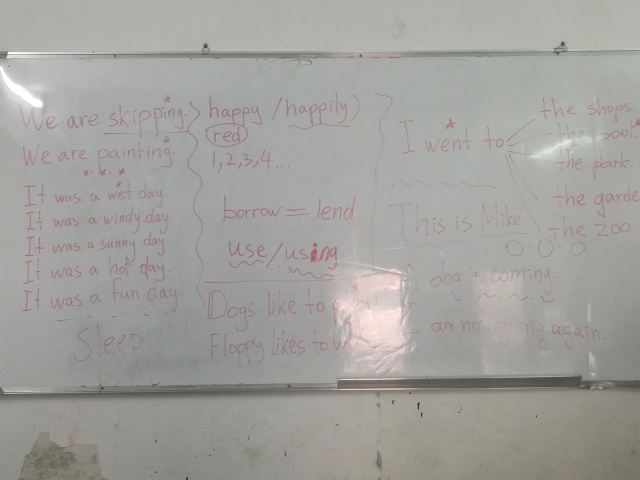 We are skipping.
We are painting.
It was a wet day.
It was a windy day.
It was a sunny day
It was a hot day.
It was a fun day.
Sleep
happy / happily
red
1,2,3,4...
borrow = lend
use / using
Dogs like to
Floppy likes to
I went to
the shops.
the pool.
the park.
the garde
the zoo.
This is Mike.
is coming.
am not going again.